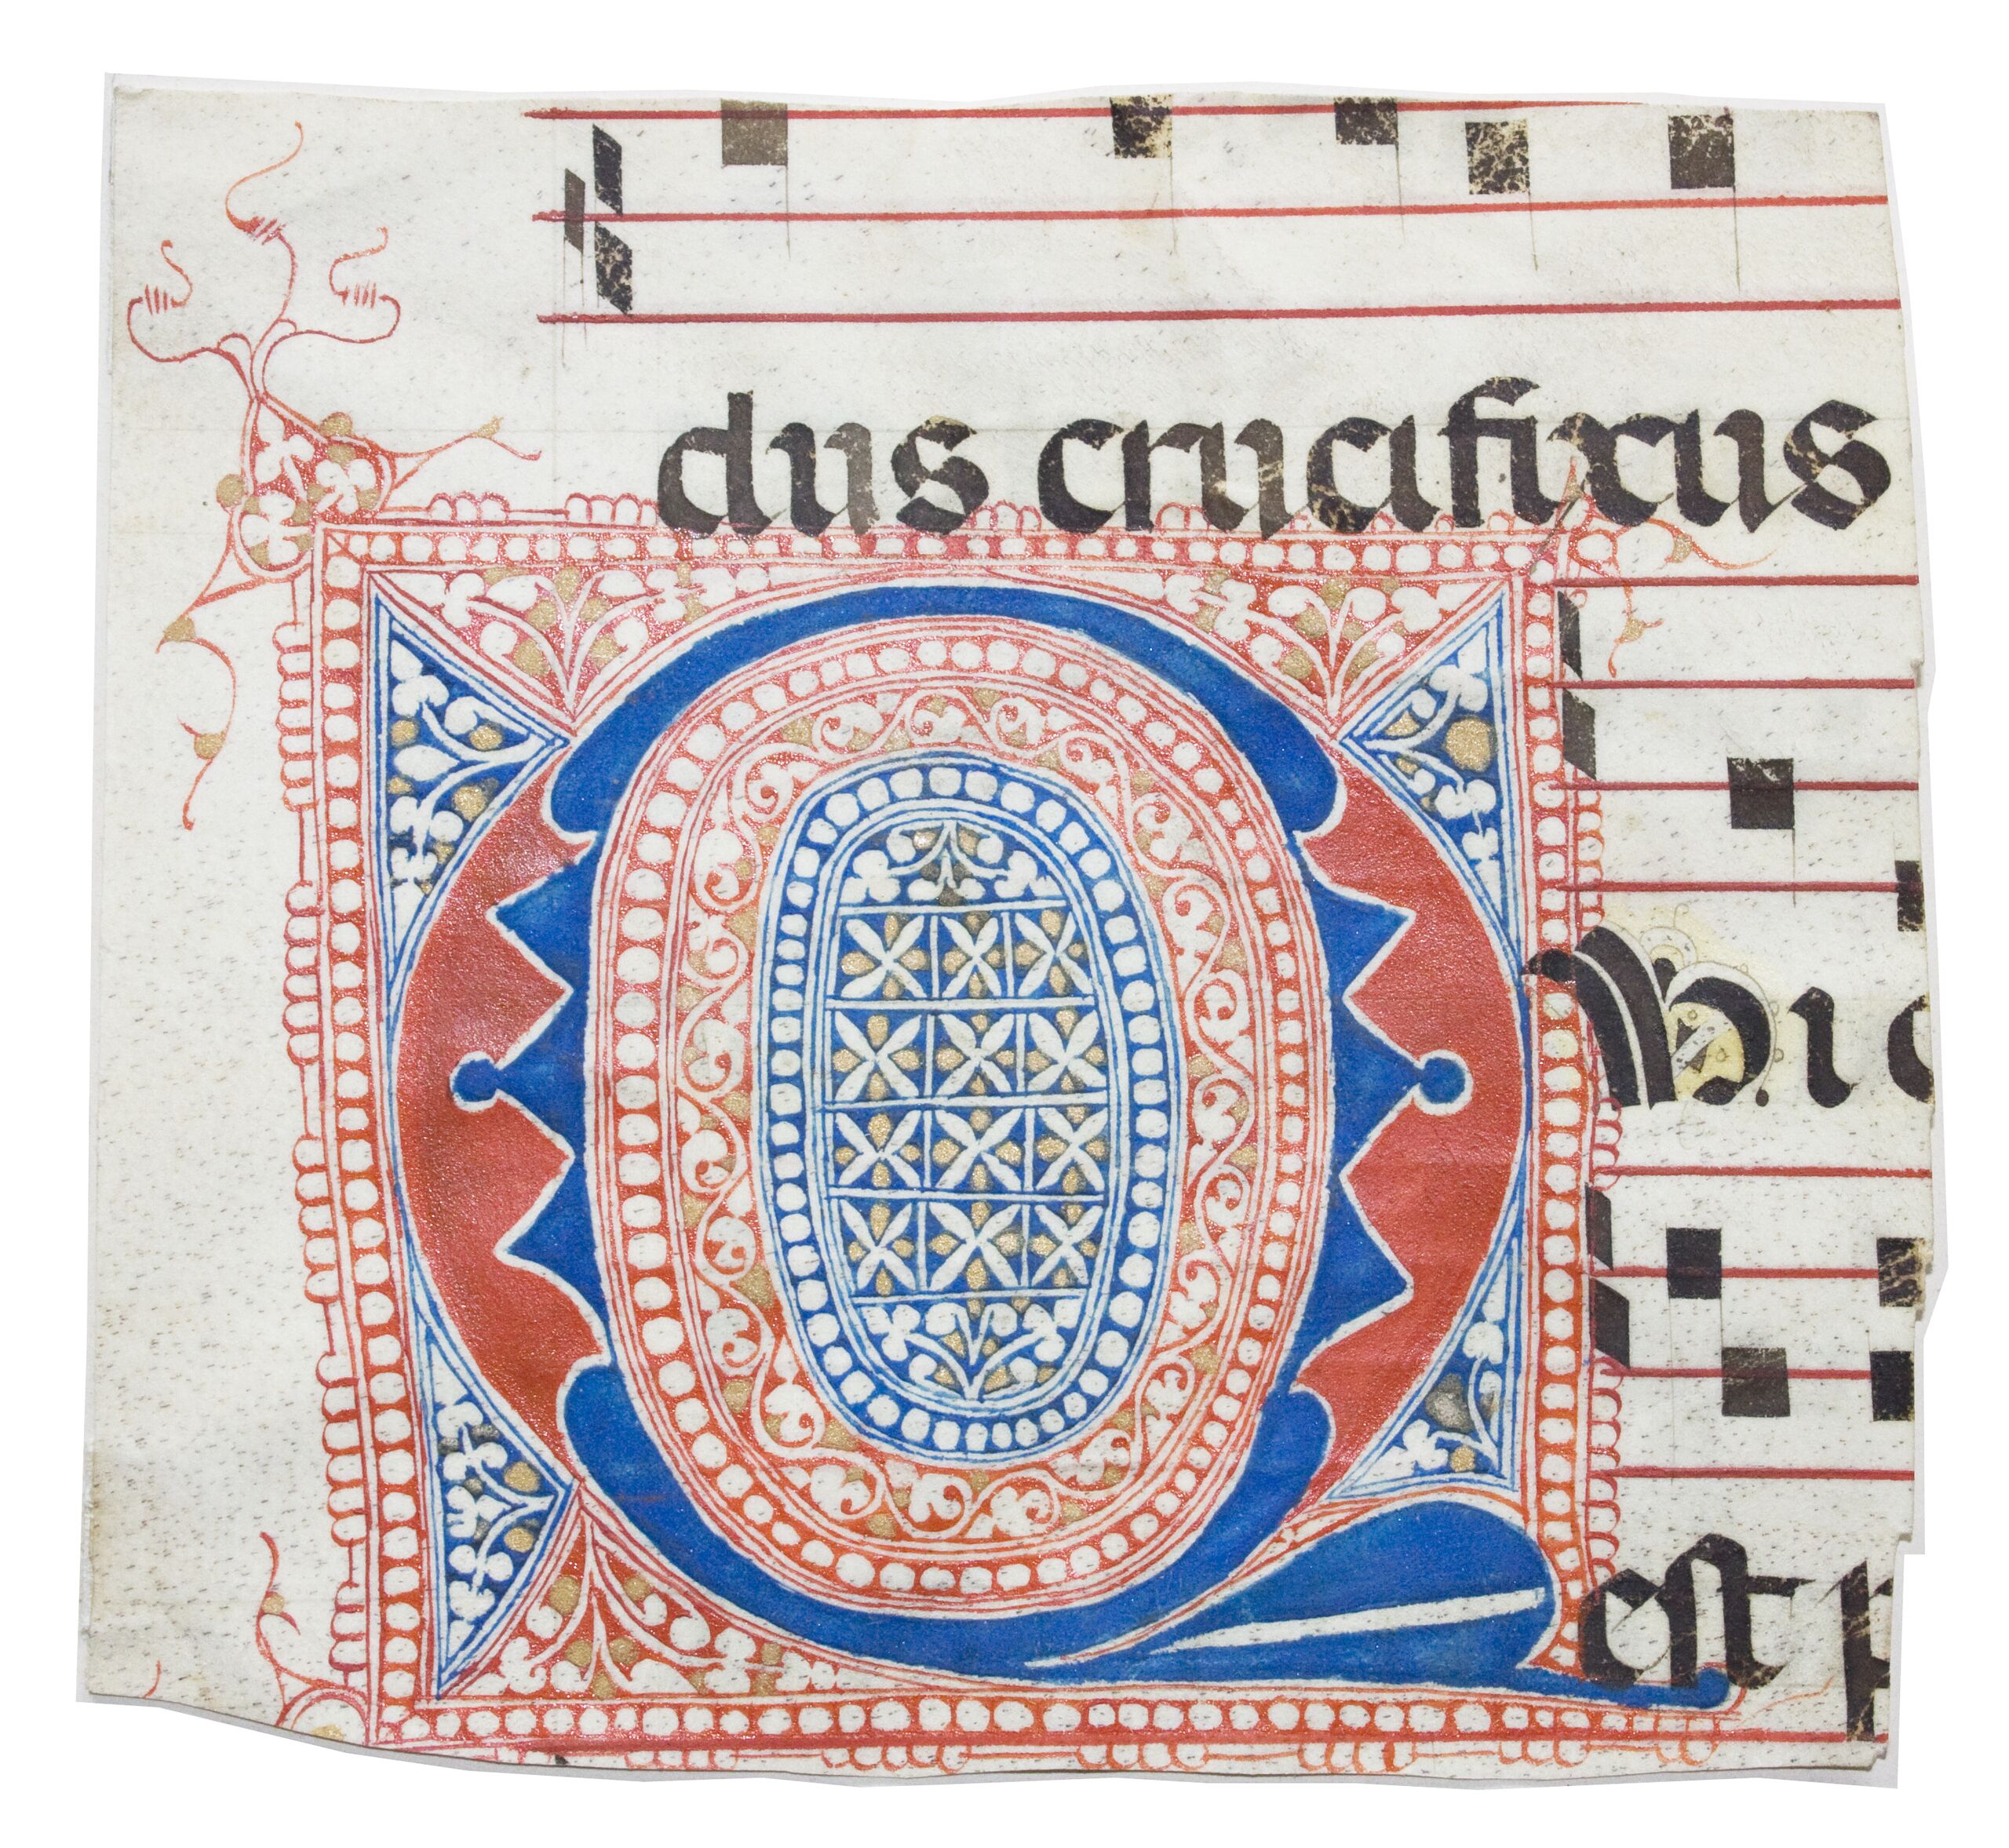 dus crucifixus
QVi
est